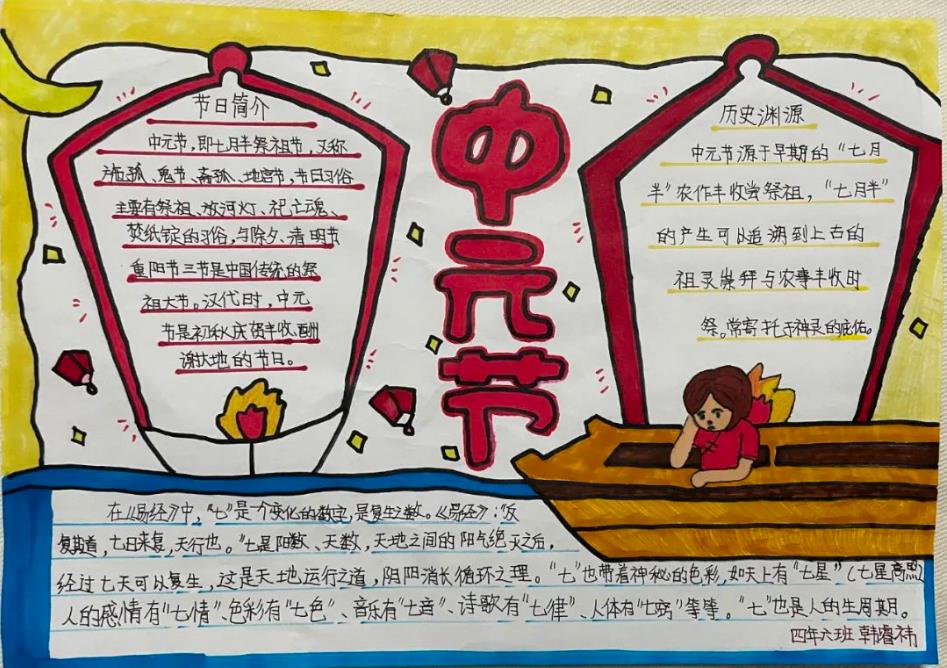 中元节
节日简介
中元节，即七月半祭祖节，又称
施孤、鬼节、斋孤、地官节，节日习俗
主要有祭祖、放河灯、祀亡魂、
焚纸锭的习俗，与除夕、清明节
重阳节三节是中国传统的祭
祖大节。汉代时，中元
节是初秋庆贺丰收、酬
谢大地的节日。
历史渊源
中元节源于早期的“七月
半”农作丰收尝祭祖，“七月半”
的产生可以追溯到上古的
祖灵崇拜与农事丰收时
祭。常寄托于神灵的庇佑。
在《易经》中，“七”是一个变化的数字，是复生之数。《易经》：“反
复其道，七日来复，天行也。”七是阳数、天数，天地之间的阳气绝灭之后，
经过七天可以复生，这是天地运行之道，阴阳消长循环之理。“七”也带着神秘的色彩，如天上有“七星”（七星高照
人的感情有“七情”、色彩有“七色”、音乐有“七音”、诗歌有“七律”、人体有“七窍”等等。“七”也是人的生周期。
四年六班 韩睿祎